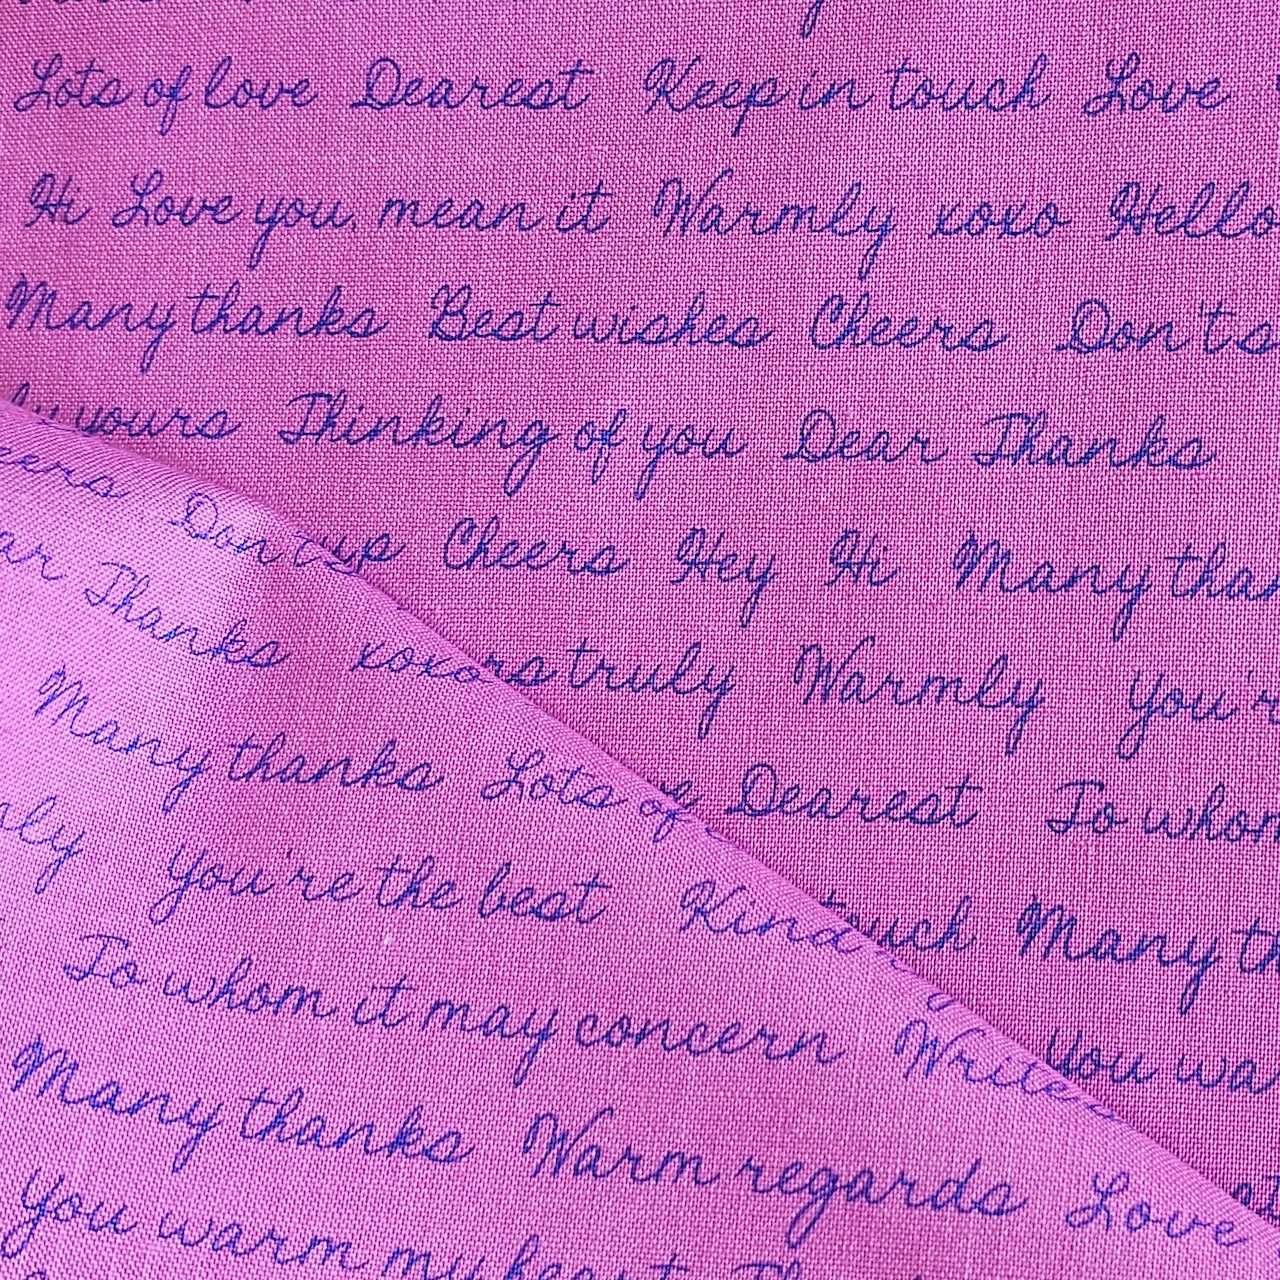 Lots of love Dearest Keep in touch Love
Hi Love you, mean it Warmly xoxo Hello
Many thanks Best wishes Cheers Don't s
ly yours Thinking of you Dear Thanks
up Cheers Hey Hi Many than
rs truly Warmly You'r
Dearest To whom
touch Many th
You wa
eers Don't
ar Thanks xoxo
Many thanks Lots of
mly You're the best Kind
To whom it may concern Write
Many thanks Warm regards Love
You warm my heart